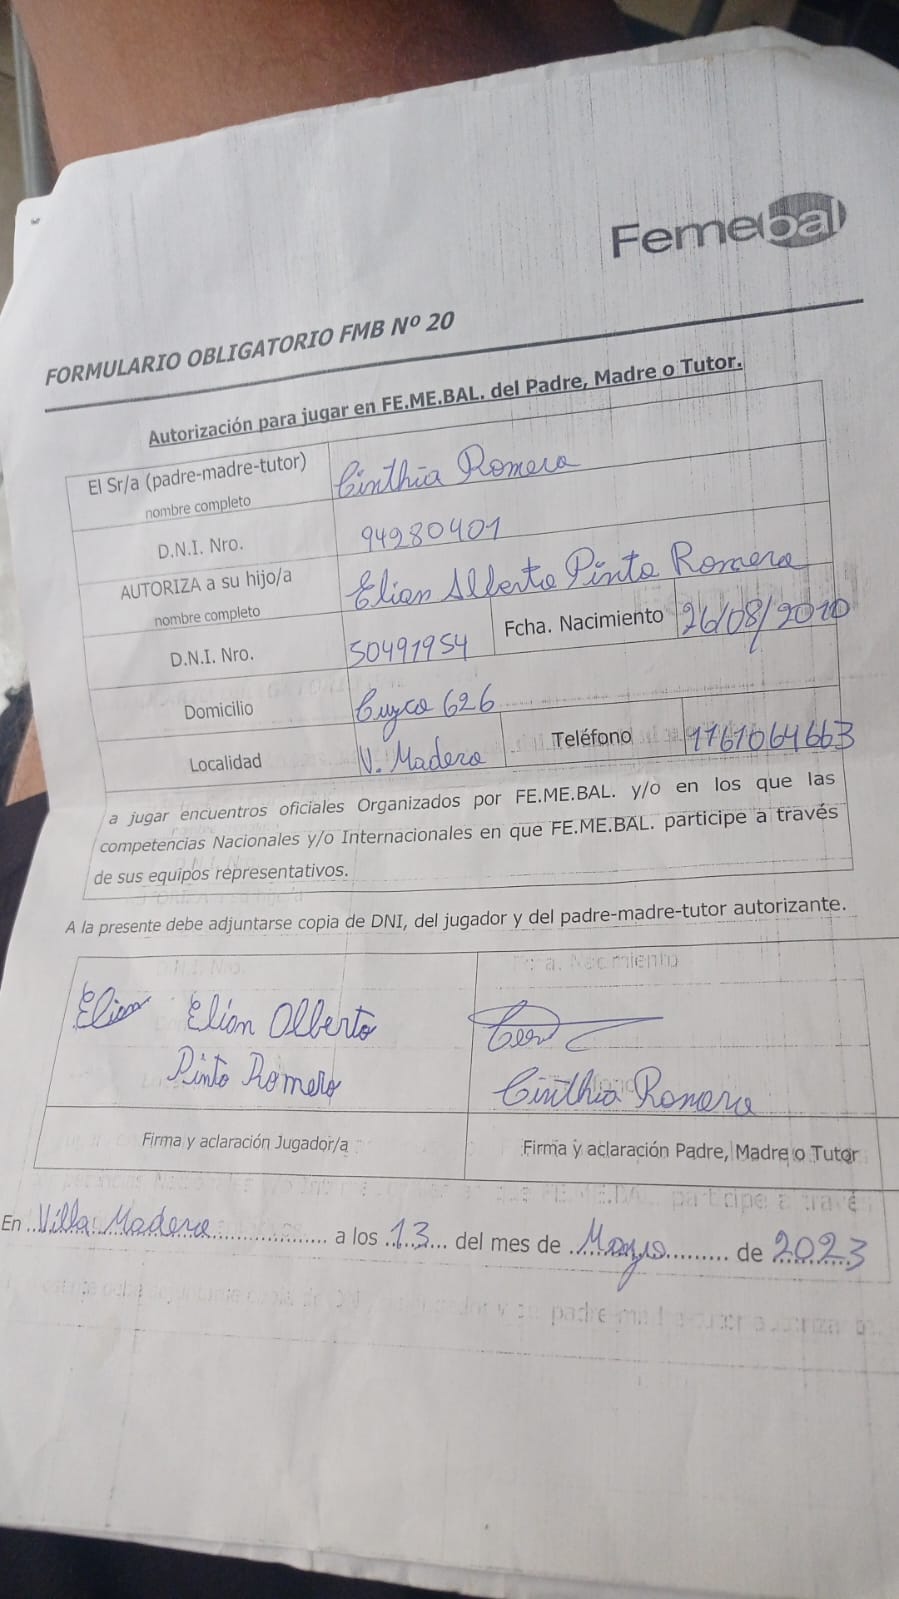 Femebal
FORMULARIO OBLIGATORIO FMB Nº 20
Autorización para jugar en FE.ME.BAL. del Padre, Madre o Tutor.
El Sr/a (padre-madre-tutor) Cinthia Romero
nombre completo
D.N.I. Nro. 94280401
AUTORIZA a su hijo/a Elian Alberto Pinto Romero
nombre completo
D.N.I. Nro. 50491954 Fcha. Nacimiento 26/08/2010
Domicilio Cuyco 626
Localidad V. Madero Teléfono 1161064663
a jugar encuentros oficiales Organizados por FE.ME.BAL. y/o en los que las
competencias Nacionales y/o Internacionales en que FE.ME.BAL. participe a través
de sus equipos representativos.
A la presente debe adjuntarse copia de DNI, del jugador y del padre-madre-tutor autorizante.
Elian Elian Alberto
Pinto Romero
Cinthia Romero
Firma y aclaración Jugador/a Firma y aclaración Padre, Madre o Tutor
En Villa Madero a los 13 del mes de Mayo de 2023